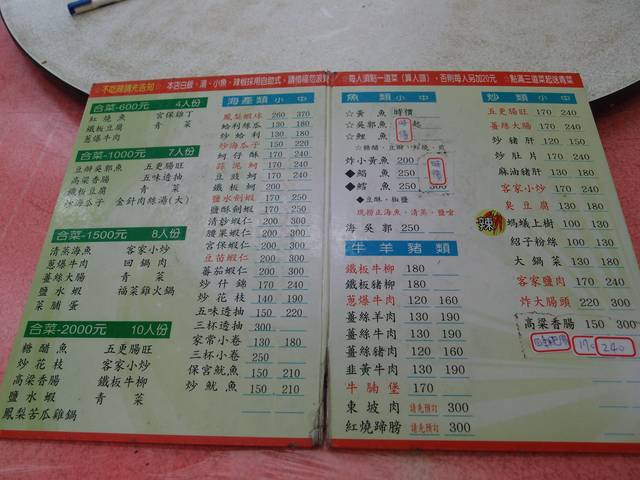 ☆不吃辣請先告知☆ 本店白飯、湯、小魚、辣椒採用自助式,請
合菜-600元 4人份
紅燒魚 宮保雞丁
鐵板豆腐 青菜
蔥爆牛肉
合菜-1000元 7人份
豆瓣吳郭魚 五更腸旺
高梁香腸 五味透抽
鐵板豆腐 青菜
炒海瓜子 金針肉絲湯(大)
合菜-1500元 8人份
清蒸海魚 客家小炒
蔥爆牛肉 回鍋肉
薑絲大腸 青菜
鹽水蝦 福菜雞火鍋
菜脯蛋
合菜-2000元 10人份
糖醋魚 五更腸旺
炒花枝 客家小炒
高梁香腸 鐵板牛柳
鹽水蝦 青菜
鳳梨苦瓜雞鍋
海產類 小 中
鳳梨蝦球 260 370
蛤利絲瓜 130 180
炒蛤利 130 180
炒海瓜子 150 220
蚵仔酥 170 240
蒜泥蚵 170 240
豆豉蚵 170 240
鐵板蚵 200
鹽水劍蝦 170 250
鹽酥劍蝦 170 250
清炒蝦仁 200 300
宮保蝦仁 200 300
腰果蝦仁 200 300
豆苗蝦仁 200 300
蕃茄蝦仁 200 300
炒什錦 170 240
炒花枝 140 190
五味透抽 150 220
三杯透抽 300
家常小卷 130 180
三杯小卷 250
保宮魷魚 150 210
炒魷魚 150 210
☆每人須點一道菜(算人頭),否則每人另加20元 ☆點滿三道菜起送青菜
魚類 小 中
☆黃魚 時價
☆吳郭魚 起
☆鯉魚
炸小黃魚 200
◆鯧魚 250
◆鱈魚 250
◆豆酥、椒鹽
現撈正海魚、清蒸、鹽嗆
海吳郭 250
牛羊豬類
鐵板牛柳 180
鐵板豬柳 180
蔥爆牛肉 120 160
薑絲羊肉 130 190
薑絲牛肉 130 190
薑絲豬肉 120 160
韭黃牛肉 130 190
牛腩堡 170
東坡肉 請先預訂 300
紅燒蹄膀 請先預訂 300
炒類 小 中
五更腸旺 170 240
薑絲大腸 170 240
炒豬肝 120 150
炒肚片 170 240
麻油豬肝 130 170
客家小炒 170 240
臭豆腐 130 190
辣
螞蟻上樹 100 130
紹子粉絲 100 130
大鍋菜 130 190
客家鹽肉 170 240
炸大腸頭 220 300
高梁香腸 150 300
170 240